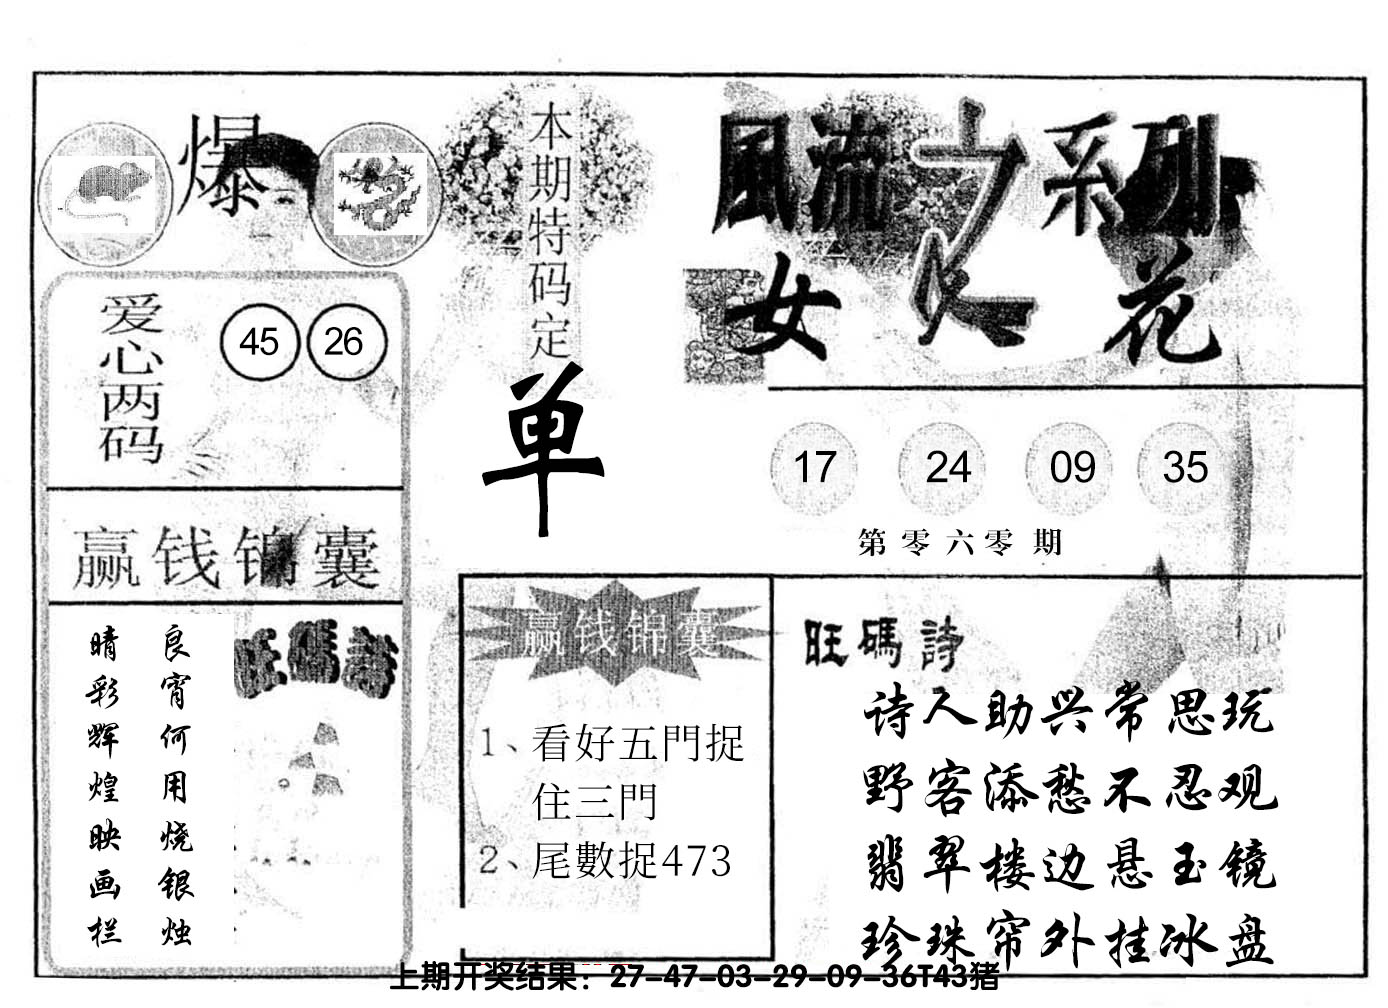 爆
爱心两码
45 26
赢钱锦囊
良宵何用烧银烛
晴彩辉煌映画栏
旺碼詩
本期特码定
单
風流之系列
女人花
17 24 09 35
第零六零期
赢钱锦囊
1、看好五門捉
住三門
2、尾數捉473
旺碼詩
诗人助兴常思玩
野客添愁不忍观
翡翠楼边悬玉镜
珍珠帘外挂冰盘
上期开奖结果：27-47-03-29-09-36T43猪